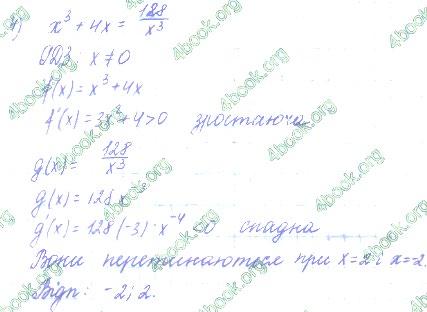 4) x³ + 4x = 128/x³
ОДЗ: x ≠ 0
f(x) = x³ + 4x
f'(x) = 3x² + 4 > 0 зростаюча
g(x) = 128/x³
g(x) = 128x⁻³
g'(x) = 128(-3)·x⁻⁴ < 0 спадна
Вони перетинаються при x=2 і x=-2.
Відп: -2; 2.
4book.org